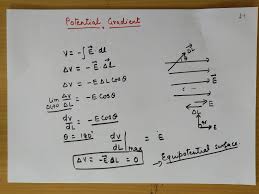 Potential Gradient
V = -∫ E⃗ dl
ΔV = - E⃗ . ΔL⃗
ΔV = - E ΔL Cosθ
Lim ΔL→0 ΔV/ΔL = - E Cosθ
dV/dL = - E Cosθ
θ = 180° dV/dL |max = E
ΔV = - E⃗ . ΔL = 0 → Equipotential Surface
ΔL
E⃗
E⃗
ΔL
E